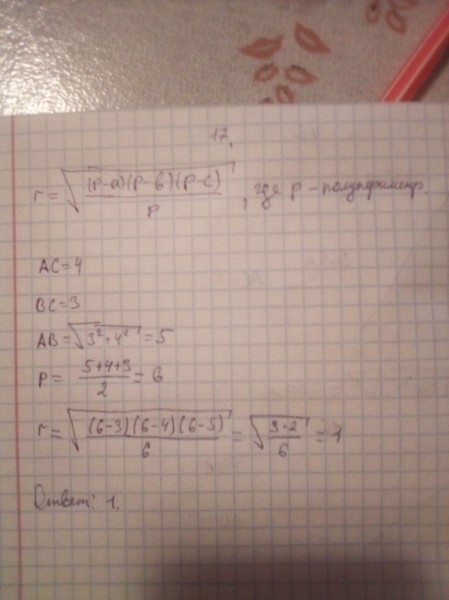 17.
r = √((p-a)(p-b)(p-c)/p), где p - полупериметр.
AC = 4
BC = 3
AB = √(3²+4²) = 5
P = (5+4+3)/2 = 6
r = √((6-3)(6-4)(6-5)/6) = √(3·2/6) = 1
Ответ: 1.